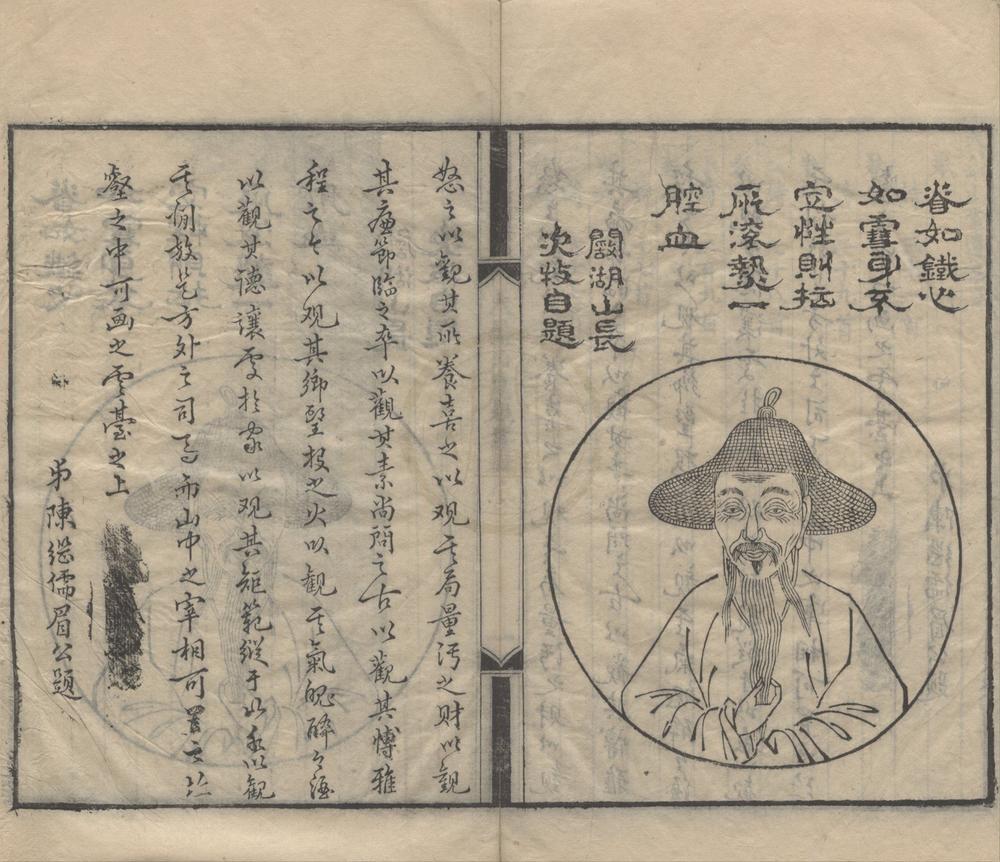 脊如鐵心
如雪身不
定性則拙
所滾熱一
腔血
闞湖山長
次牧自題
怒之以觀其所養喜之以观其局量污之财以觀
其廉節臨之卒以觀其素尚問之古以觀其博雅
程之今以观其鄉投之火以觀其氣魄醉之酒
以觀其德讓處於家以观其矩範縱于山水以觀
其倜放是方外之司馬而山中之宰相可置之丘
壑之中可画之雲臺之上
弟陳継儒眉公題